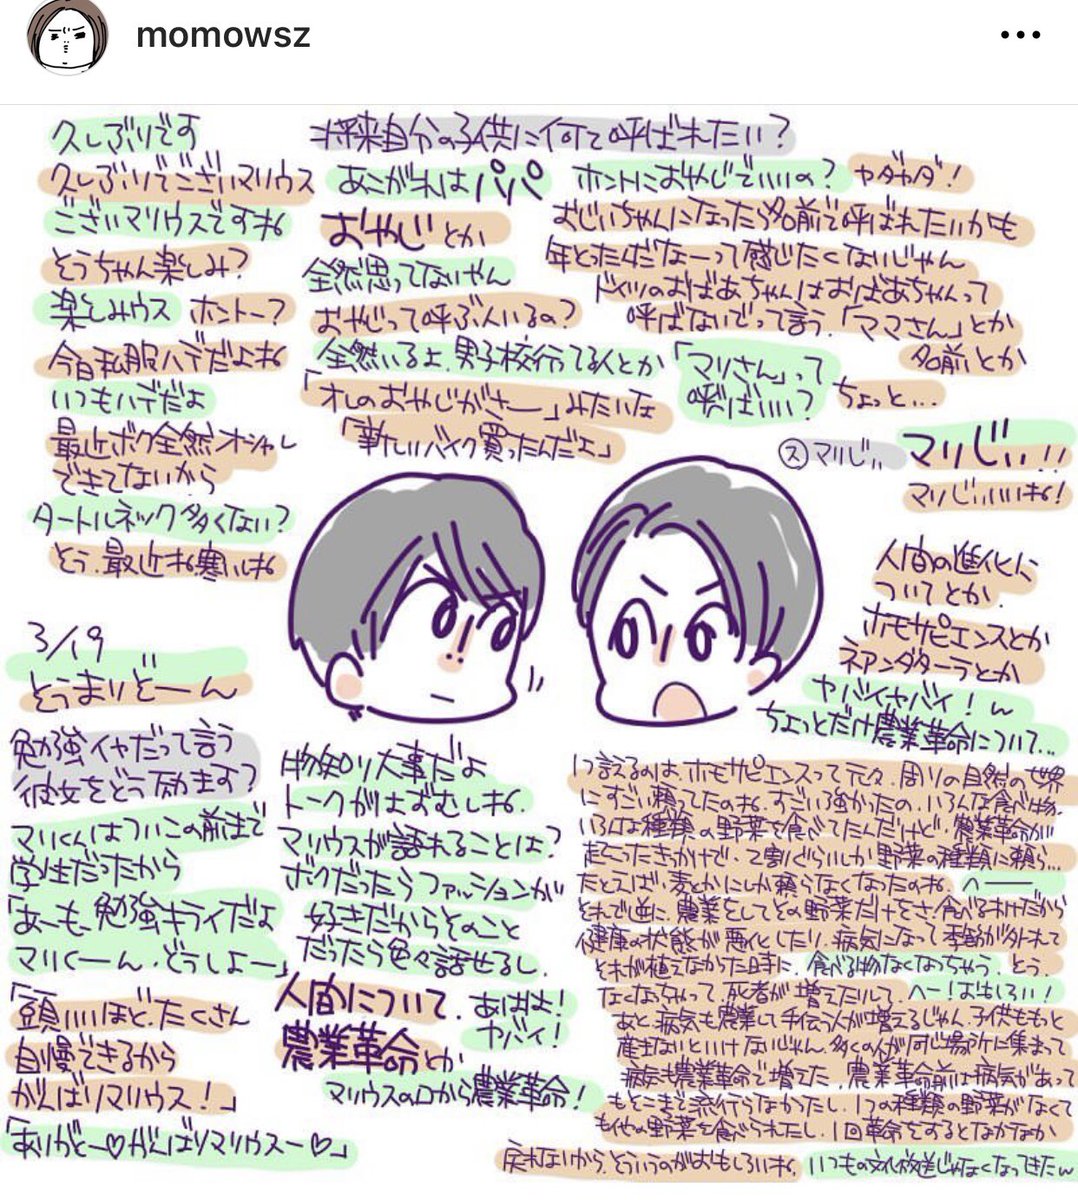 momowsz
久しぶりです
久しぶりでございマリウス
ございマリウスですね
そうちゃん楽しみ?
楽しみウス ホントー?
今日私服ハデだよね
いつもハデだよ
最近ボク全然オシャレ
できてないから
タートルネック多くない?
そう、最近ね寒いね
3/19
そうまりどーん
勉強イヤだって言う
彼女をどう励ます?
マリくんはついこの前まで
学生だったから
「あーも、勉強キライだよ
マリくーん、どうしよー」
「頭いいほど、たくさん
自慢できるから
がんばりマリウス!」
「ありがとー♡がんばりマリウスー♡」
将来自分の子供に何て呼ばれたい?
あこがれはパパ
おやじとか
全然思ってないやん
おやじって呼ぶ人いるの?
全然いるよ、男子校行てる人とか
「オレのおやじがさー」みたいな
「新しいバイク買ったんだよ」
ホントにおやじでいいの? ヤダヤダ!
おじいちゃんになったら名前で呼ばれたいかも
年とったんだなーって感じたくないじゃん
ドイツのおばあちゃんはおばあちゃんって
呼ばないでって言う、「ママさん」とか
名前とか
「マリさん」って
呼ばいい? ちょっと...
ス マリじい マリじい!!
マリじいいいね!
人間の進化に
ついてとか、
ホモサピエンスとか
ネアンダターラとか
ヤバイヤバイ!w
ちょっとだけ農業革命について...
物知り大事だよ
トークがはずむしね、
マリウスが語れることは?
ボクだったらファッションが
好きだからそのこと
だったら色々話せるし、
人間について、 あはは!
ヤバイ!
農業革命とか
マリウスの口から農業革命!
1つ言えるのは、ホモサピエンスって元々、周りの自然の世界
にすごい頼ってたのね、すごい強かったの、いろんな食べ物、
いろんな種類の野菜を食べてたんだけど、農業革命が
起こったきっかけで、2割ぐらいしか野菜の種類に頼ら...
たとえば、麦とかにしか頼らなくなったのね、 へー
それで逆に、農業をしてその野菜だけをさ、食べるわけだから
健康の状態が悪化したり、病気になって季節が外れて
それが植えなかった時に、食べる物なくなっちゃう、そう、
なくなっちゃって、死者が増えたりして、へー!おもしろい!
あと、病気も農業して手伝う人が増えるじゃん、子供ももっと
産まないといけないじゃん、多くの人が同じ場所に集まって
病気も農業革命で増えた、農業革命前は病気があって
もそこまで流行らなかったし、1つの種類の野菜がなくて
も他の野菜を食べられたし、1回革命をするとなかなか
戻れないから、そういうのがおもしろいね、いつもの文化放送じゃなくなってきたw